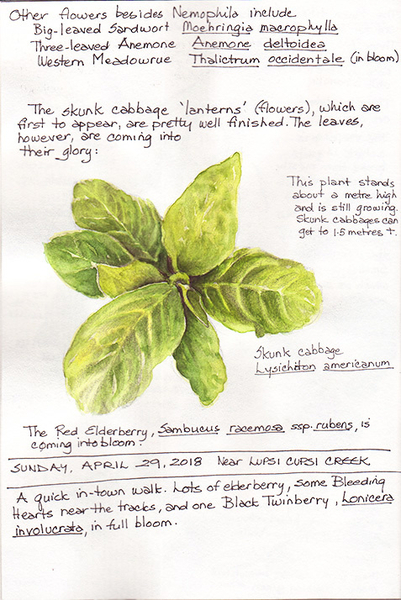 Other flowers besides Nemophila include
Big-leaved Sandwort Moehringia macrophylla
Three-leaved Anemone Anemone deltoidea
Western Meadowrue Thalictrum occidentale (in bloom)
The skunk cabbage 'lanterns' (flowers), which are
first to appear, are pretty well finished. The leaves,
however, are coming into
their glory:
This plant stands
about a metre high
and is still growing.
Skunk cabbages can
get to 1.5 metres +.
Skunk cabbage
Lysichiton americanum
The Red Elderberry, Sambucus racemosa ssp. rubens, is
coming into bloom.
SUNDAY, APRIL 29, 2018 NEAR LUPSI CUPSI CREEK
A quick in-town walk. Lots of elderberry, some Bleeding
Hearts near the tracks, and one Black Twinberry, Lonicera
involucrata, in full bloom.